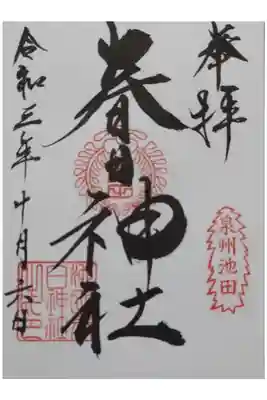 奉拝
泉州池田
春日神社
令和三年十月六日